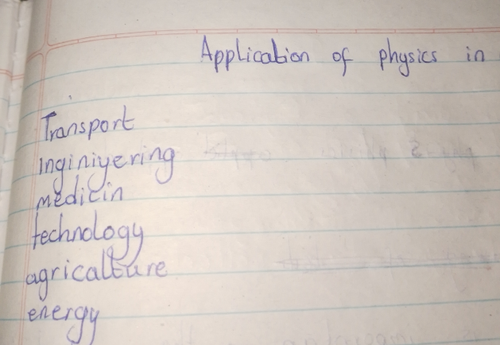 Application of physics in
Transport
inginiyering
medicin
technology
agricalture
energy